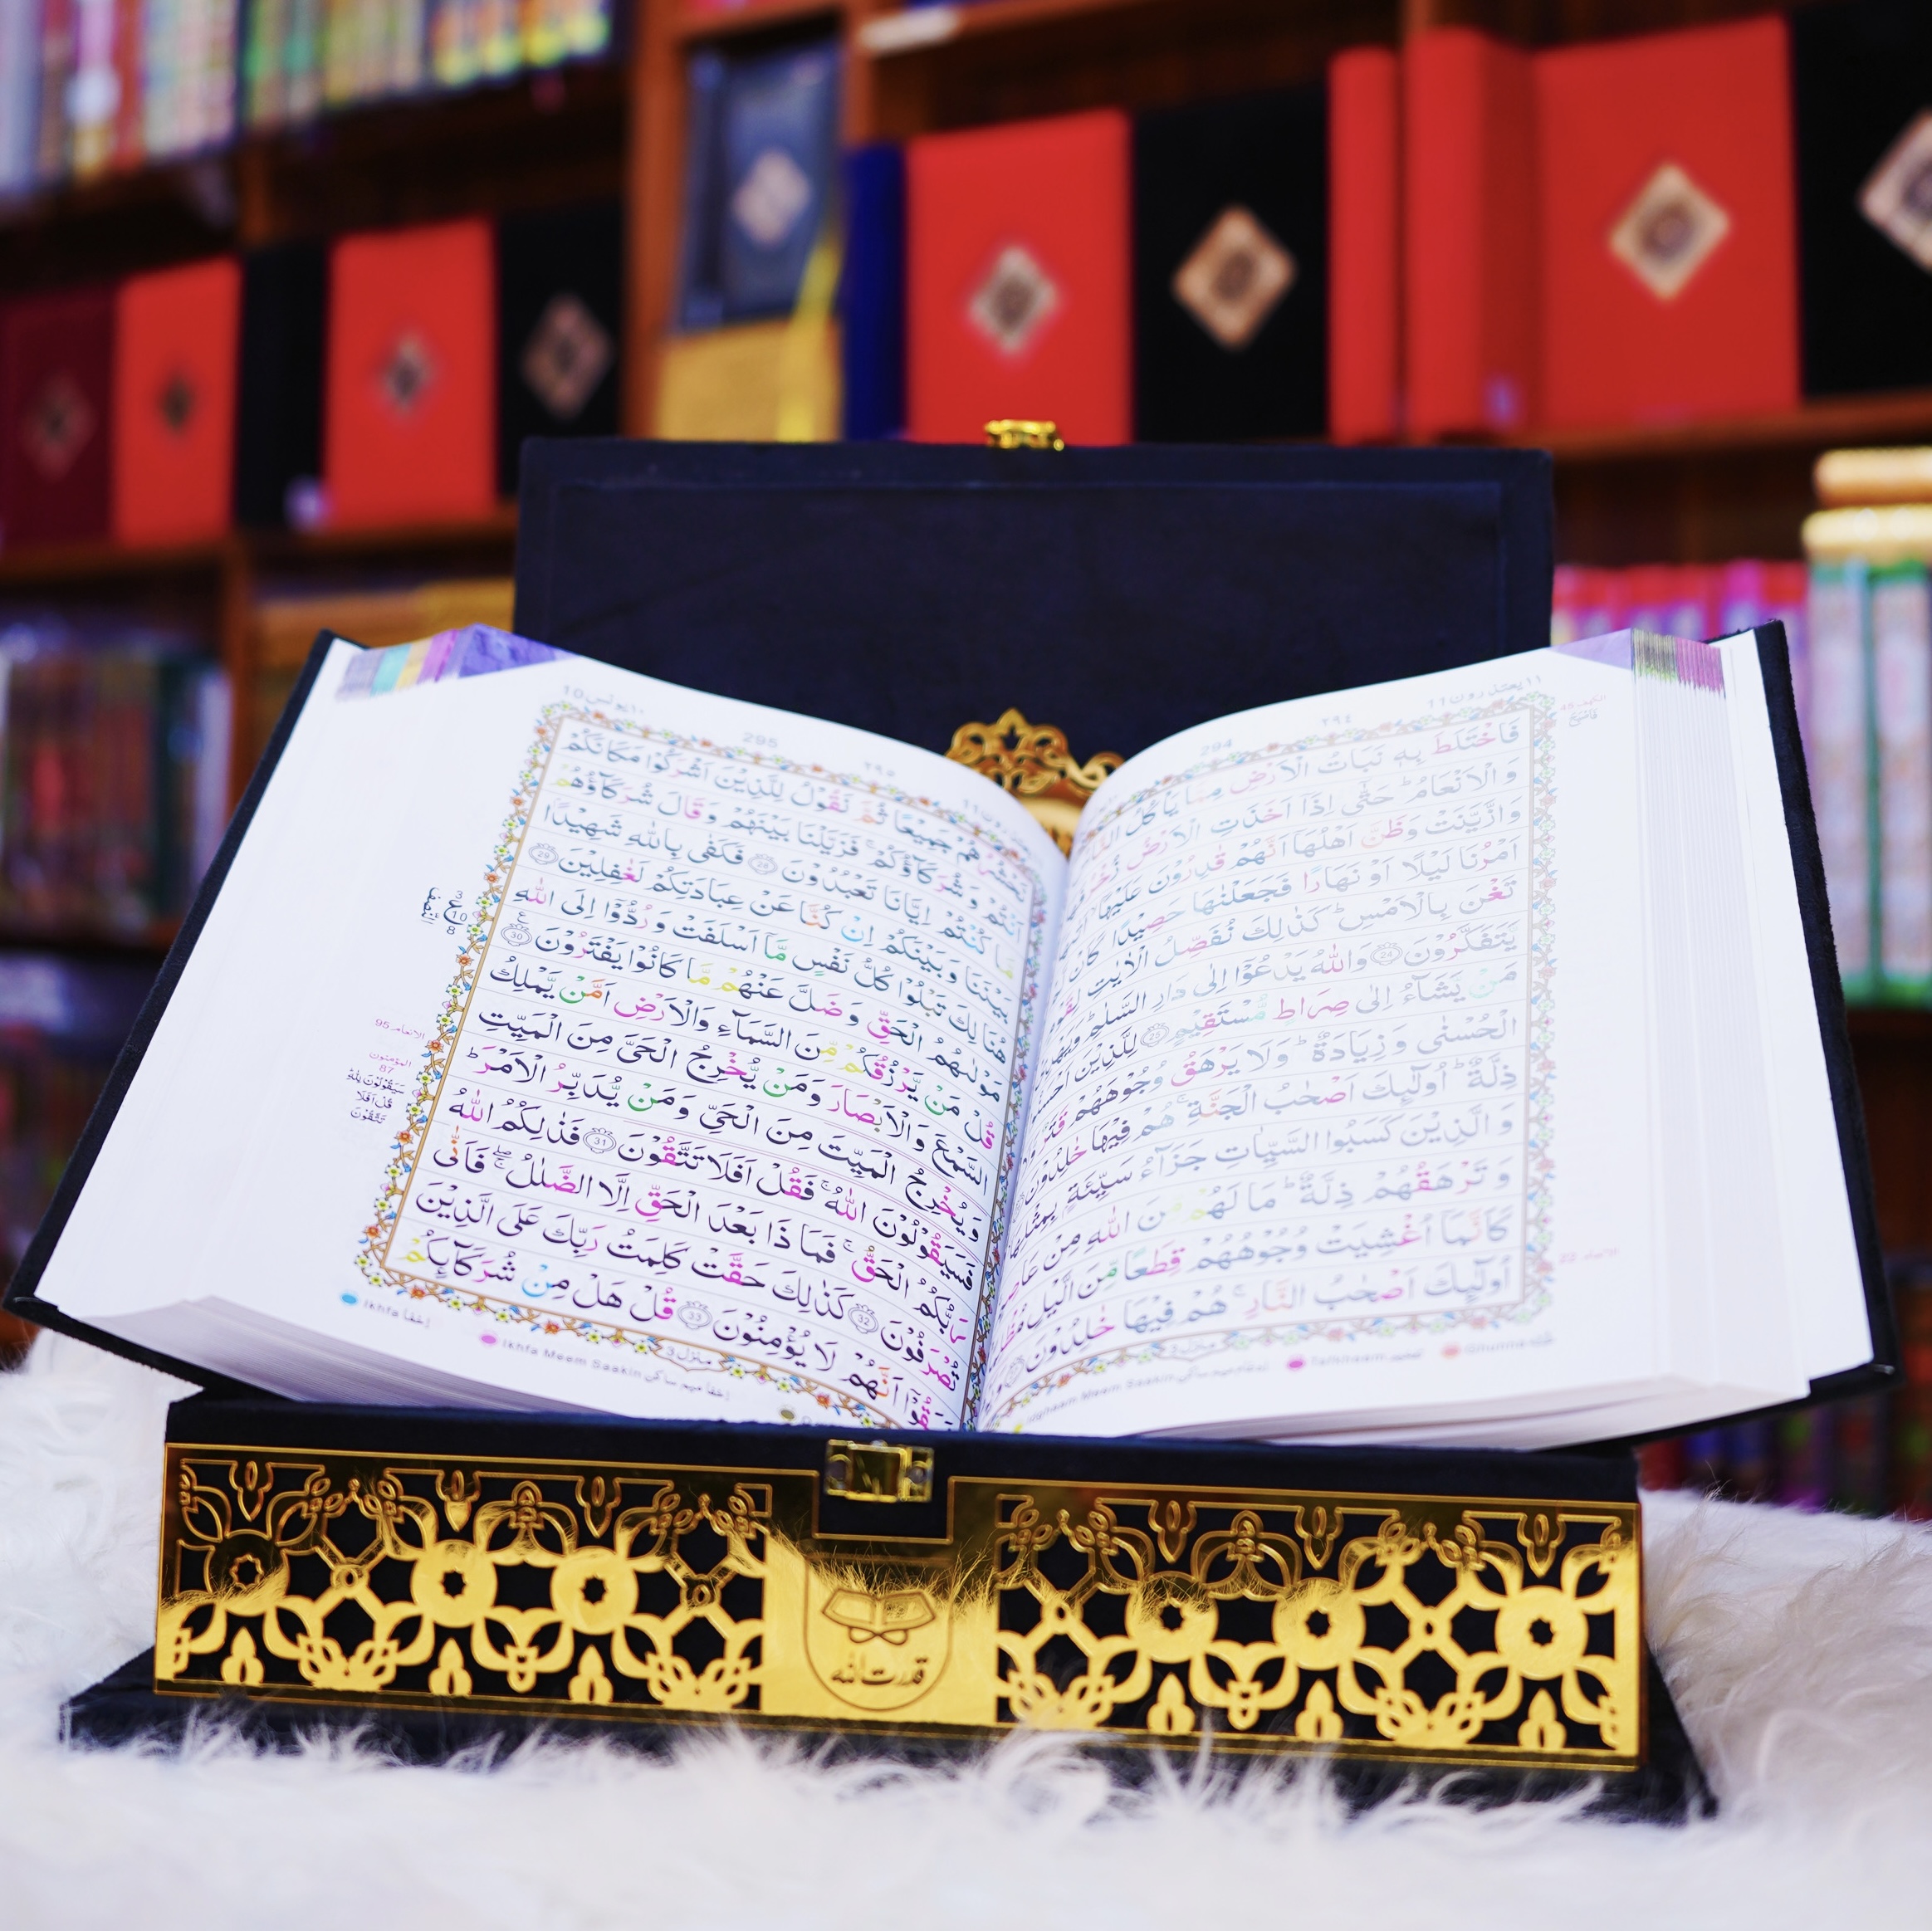 ١١ يعتذرون 11
٢٩٤ 294
فَاخْتَلَطَ بِهٖ نَبَاتُ الْاَرْضِ مِمَّا يَاْكُلُ
وَالْاَنْعَامُ ؕ حَتّٰۤى اِذَاۤ اَخَذَتِ الْاَرْضُ
وَازَّيَّنَتْ وَظَنَّ اَهْلُهَاۤ اَنَّهُمْ قٰدِرُوْنَ عَلَيْهَاۤ
اَمْرُنَا لَيْلًا اَوْ نَهَارًا فَجَعَلْنٰهَا حَصِيْدًا كَاَنْ
تَغْنَ بِالْاَمْسِ ؕ كَذٰلِكَ نُفَصِّلُ الْاٰيٰتِ
يَّتَفَكَّرُوْنَ 24 وَاللّٰهُ يَدْعُوْۤا اِلٰى دَارِ السَّلٰمِ ؕ
مَنْ يَّشَآءُ اِلٰى صِرَاطٍ مُّسْتَقِيْمٍ 25 لِلَّذِيْنَ
الْحُسْنٰى وَزِيَادَةٌ ؕ وَلَا يَرْهَقُ وُجُوْهَهُمْ
ذِلَّةٌ ؕ اُولٰٓئِكَ اَصْحٰبُ الْجَنَّةِ ۚ هُمْ فِيْهَا خٰلِدُوْنَ
وَالَّذِيْنَ كَسَبُوا السَّيِّاٰتِ جَزَآءُ سَيِّئَةٍۭ بِمِثْلِهَا
وَتَرْهَقُهُمْ ذِلَّةٌ ؕ مَا لَهُمْ مِّنَ اللّٰهِ مِنْ
كَاَنَّمَاۤ اُغْشِيَتْ وُجُوْهُهُمْ قِطَعًا مِّنَ الَّيْلِ
اُولٰٓئِكَ اَصْحٰبُ النَّارِ ۚ هُمْ فِيْهَا خٰلِدُوْنَ
Ghunna غنه Tafkheem تفخيم Meem Saakin
١٠ يونس 10
٢٩٥ 295
نَحْشُرُهُمْ جَمِيْعًا ثُمَّ نَقُوْلُ لِلَّذِيْنَ اَشْرَكُوْا مَكَانَكُمْ
اَنْتُمْ وَشُرَكَآؤُكُمْ ۚ فَزَيَّلْنَا بَيْنَهُمْ وَقَالَ شُرَكَآؤُهُمْ
مَّا كُنْتُمْ اِيَّانَا تَعْبُدُوْنَ 28 فَكَفٰى بِاللّٰهِ شَهِيْدًا
بَيْنَنَا وَبَيْنَكُمْ اِنْ كُنَّا عَنْ عِبَادَتِكُمْ لَغٰفِلِيْنَ 29
هُنَالِكَ تَبْلُوْا كُلُّ نَفْسٍ مَّاۤ اَسْلَفَتْ وَرُدُّوْۤا اِلَى اللّٰهِ
مَوْلٰىهُمُ الْحَقِّ وَضَلَّ عَنْهُمْ مَّا كَانُوْا يَفْتَرُوْنَ 30
قُلْ مَنْ يَّرْزُقُكُمْ مِّنَ السَّمَآءِ وَالْاَرْضِ اَمَّنْ يَّمْلِكُ
السَّمْعَ وَالْاَبْصَارَ وَمَنْ يُّخْرِجُ الْحَيَّ مِنَ الْمَيِّتِ
وَيُخْرِجُ الْمَيِّتَ مِنَ الْحَيِّ وَمَنْ يُّدَبِّرُ الْاَمْرَ ؕ
فَسَيَقُوْلُوْنَ اللّٰهُ ۚ فَقُلْ اَفَلَا تَتَّقُوْنَ 31 فَذٰلِكُمُ اللّٰهُ
رَبُّكُمُ الْحَقُّ ۚ فَمَا ذَا بَعْدَ الْحَقِّ اِلَّا الضَّلٰلُ ۚۖ فَاَنّٰى
تُصْرَفُوْنَ 32 كَذٰلِكَ حَقَّتْ كَلِمَتُ رَبِّكَ عَلَى الَّذِيْنَ
فَسَقُوْۤا اَنَّهُمْ لَا يُؤْمِنُوْنَ 33 قُلْ هَلْ مِنْ شُرَكَآئِكُمْ
منزل 3
ع
3
10
8
95 الانعام
المؤمنون
87
سَيَقُوْلُوْنَ لِلّٰهِ
قُلْ اَفَلَا
تَتَّقُوْنَ
Ikhfa اخفا
Ikhfa Meem Saakin اخفا ميم ساكن
قدرت الله